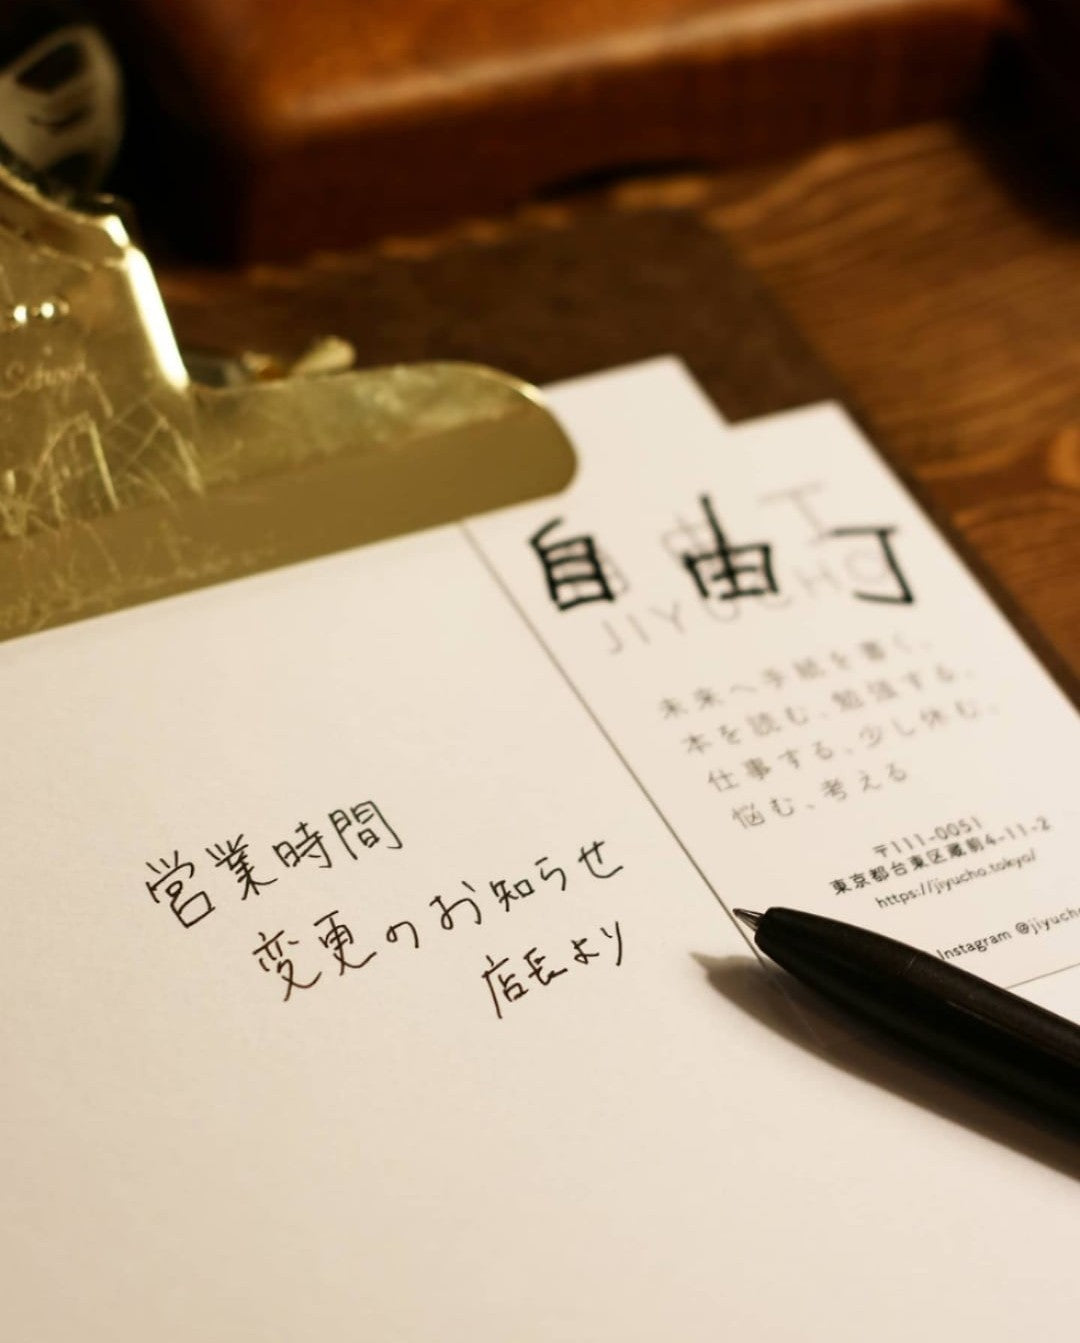 営業時間
変更のお知らせ
店長より
自由丁
JIYUCHO
未来へ手紙を書く、
本を読む、勉強する、
仕事する、少し休む、
悩む、考える
〒111-0051
東京都台東区蔵前4-11-2
https://jiyucho.tokyo/
Instagram @jiyucho
School